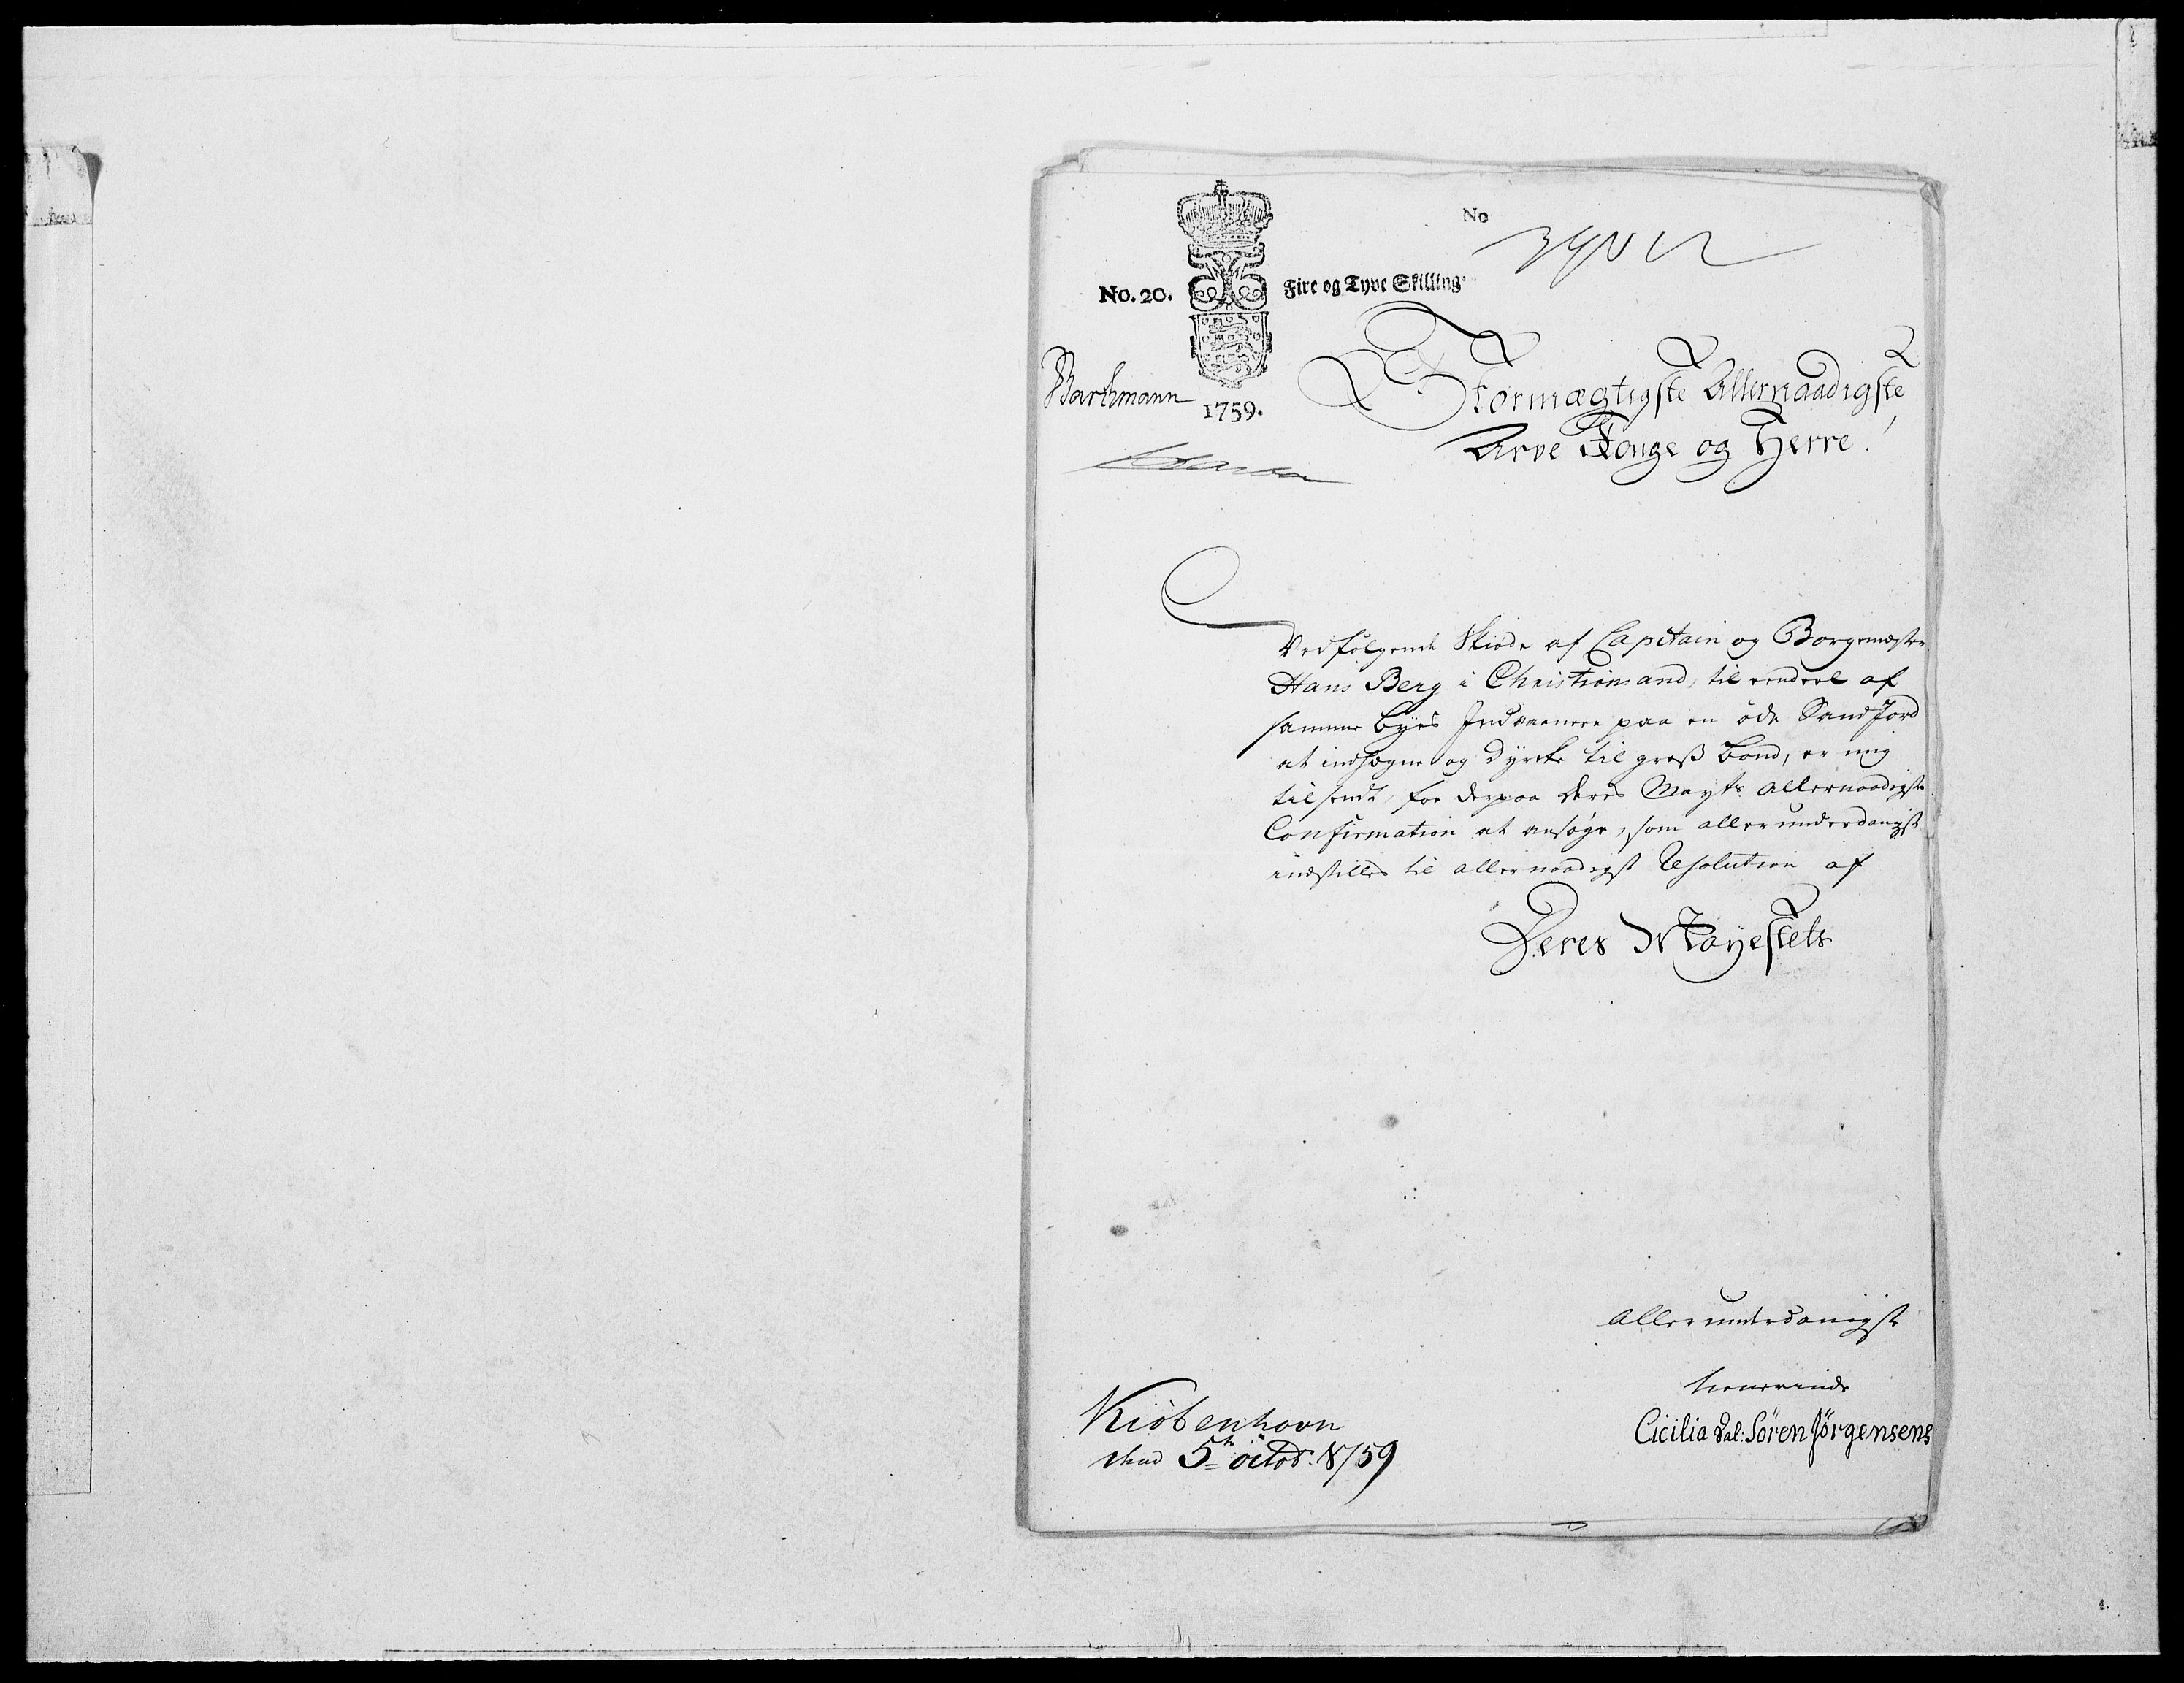 No
No. 20.
Fire og Tyve Skilling.
Barthmann
1759.
Stormægtigste Allernaadigste
Arve Konge og Herre!
Vedfølgende Skiøde af Capitain og Borgemester
Hans Berg i Christiansand, til endeel af
samme Byes Indvaanere paa en øde Sand Jord
at indhegne og dyrcke til græß bond, er mig
tilsendt, for derpaa Deres Mayts Allernaadigste
Confirmation at ansøge, som allerunderdanigst
indstilles til allernaadigst Resolution af
Deres Mayestets
Allerunderdanigste
tienerinde
Cicilia Sal: Søren Jørgensens
Kiöbenhavn
den 5te octob: 1759